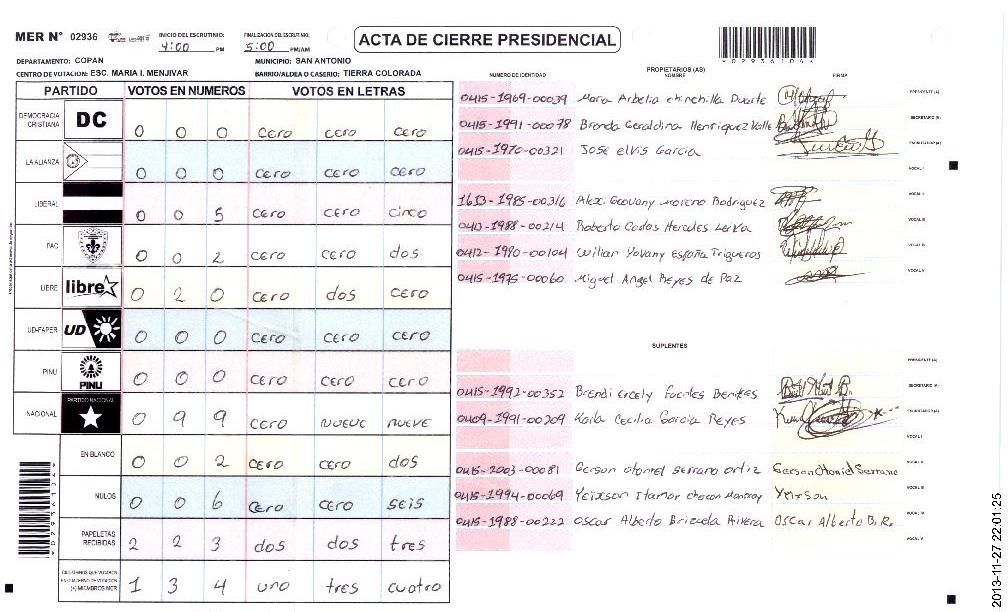 MER N° 02936
INICIO DEL ESCRUTINIO: 4:00 PM
FINALIZACION DEL ESCRUTINIO: 5:00 PM/AM
ACTA DE CIERRE PRESIDENCIAL
02936104
DEPARTAMENTO: COPAN
MUNICIPIO: SAN ANTONIO
CENTRO DE VOTACION: ESC. MARIA I. MENJIVAR
BARRIO/ALDEA O CASERIO: TIERRA COLORADA
PARTIDO VOTOS EN NUMEROS VOTOS EN LETRAS
DEMOCRACIA CRISTIANA DC 0 0 0 cero cero cero
LA ALIANZA 0 0 0 cero cero cero
LIBERAL 0 0 5 cero cero cinco
PAC 0 0 2 cero cero dos
LIBRE libre 0 2 0 cero dos cero
UD-FAPER UD 0 0 0 cero cero cero
PINU PINU 0 0 0 cero cero cero
NACIONAL PARTIDO NACIONAL 0 9 9 cero nueve nueve
EN BLANCO 0 0 2 cero cero dos
NULOS 0 0 6 cero cero seis
PAPELETAS RECIBIDAS 2 2 3 dos dos tres
CIUDADANOS QUE VOTARON EN CUADERNO DE VOTACION (+) MIEMBROS MER 1 3 4 uno tres cuatro
02936104
NUMERO DE IDENTIDAD
PROPIETARIOS (AS)
NOMBRE
FIRMA
0415-1969-00039 Mara Arbelia chinchilla Duarte PRESIDENTE (A)
0415-1991-00078 Brenda Geraldina Henriquez Valle SECRETARIO (A)
0415-1970-00321 Jose elvis Garcia ESCRUTADOR (A)
VOCAL I
1613-1985-00316 Alex Geovany Moreno Rodriguez VOCAL II
0413-1988-00214 Roberto Carlos Hercules Leiva VOCAL III
0412-1990-00104 Wilian Yovany España Trigueros VOCAL IV
0415-1975-00060 Miguel Angel Reyes de Paz VOCAL V
SUPLENTES
PRESIDENTE (A)
0415-1992-00352 Brendi Fuentes Benites SECRETARIO (A)
0409-1991-00209 Karla Cecilia Garcia Reyes ESCRUTADOR (A)
VOCAL I
0415-2003-00081 Gerson Otoniel serrano ortiz Gerson Otoniel Serrano VOCAL II
0415-1994-00069 Yeixson Itamar chacon Yeixson VOCAL III
0415-1988-00222 oscar Alberto Brizuela Rivera Oscar Alberto B.R. VOCAL IV
VOCAL V
2013-11-27 22:01:25